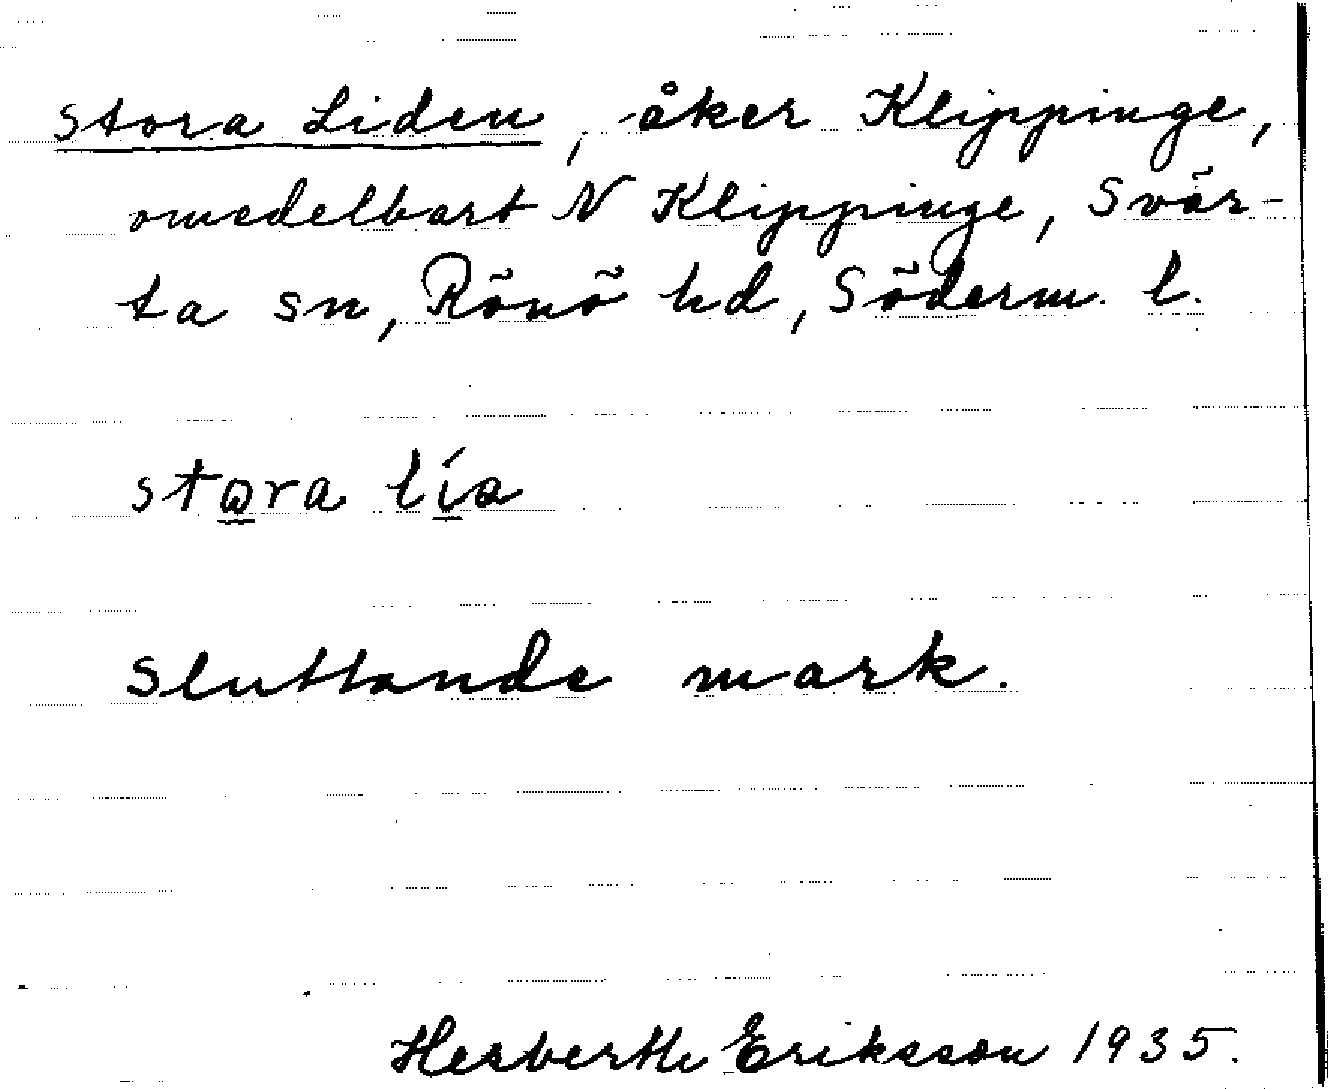 Stora Liden, åker Klippinge,
omedelbart N Klippinge, Svär-
ta sn, Rönö hd, Söderm. l.
stora lía
Sluttande mark.
Herberth Eriksson 1935.